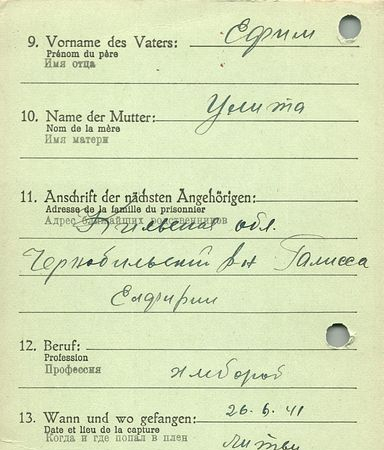 9. Vorname des Vaters: Ефим
Prénom du père
Имя отца
10. Name der Mutter: Улита
Nom de la mère
Имя матери
11. Anschrift der nächsten Angehörigen:
Adresse de la famille du prisonnier
Адрес ближайших родственников
Киевская обл.
Чернобильский рн Галисса
12. Beruf:
Profession
Профессия
хлебороб
13. Wann und wo gefangen: 26.6.41
Date et lieu de la capture
Когда и где попал в плен